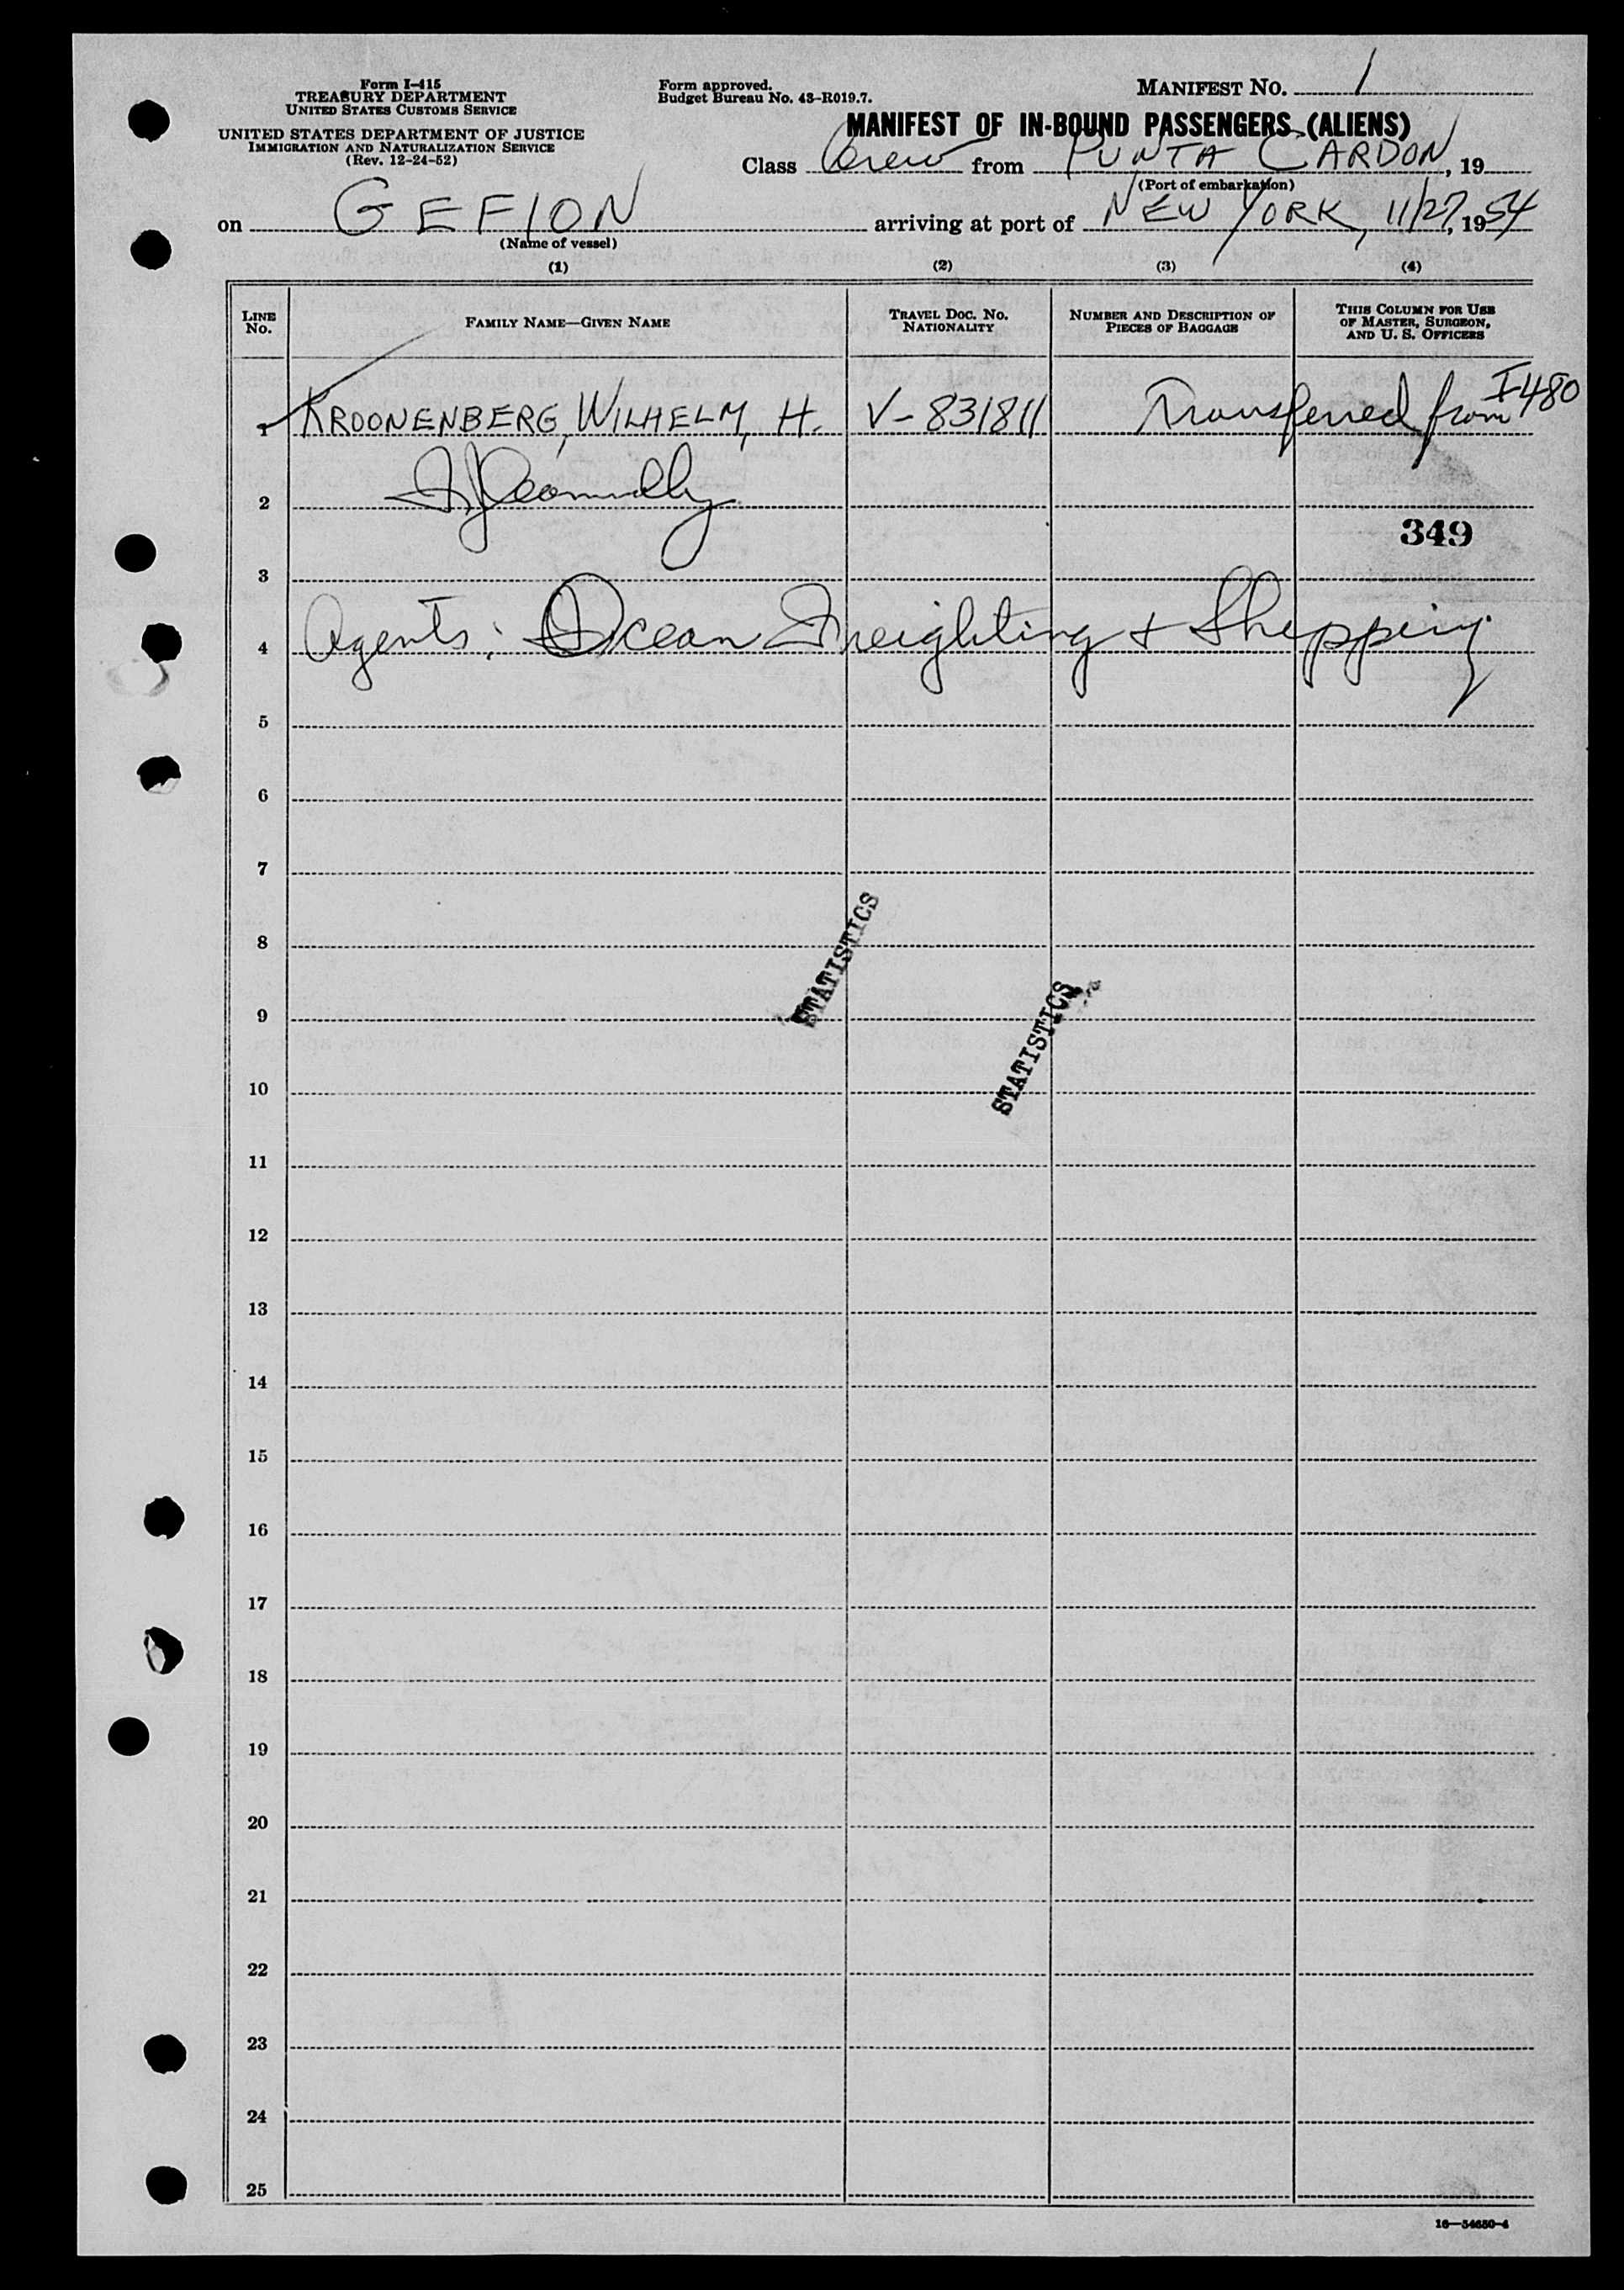 Form I-415
TREASURY DEPARTMENT
UNITED STATES CUSTOMS SERVICE
UNITED STATES DEPARTMENT OF JUSTICE
IMMIGRATION AND NATURALIZATION SERVICE
(Rev. 12-24-52)
Form approved.
Budget Bureau No. 43-R019.7.
MANIFEST NO. 1
MANIFEST OF IN-BOUND PASSENGERS (ALIENS)
Class Crew from PUNTA CARDON, 19
(Port of embarkation)
on GEFION arriving at port of NEW YORK, 11/27, 1954
(Name of vessel)
(1) (2) (3) (4)
LINE NO. FAMILY NAME—GIVEN NAME TRAVEL DOC. NO. NATIONALITY NUMBER AND DESCRIPTION OF PIECES OF BAGGAGE THIS COLUMN FOR USE OF MASTER, SURGEON, AND U. S. OFFICERS
1 KROONENBERG, WILHELM, H. V-831811 Transferred from I-480
2
349
3
4 Agents: Ocean Freighting + Shipping
5
6
7
8
STATISTICS
9
STATISTICS
10
11
12
13
14
15
16
17
18
19
20
21
22
23
24
25
16—54650-4